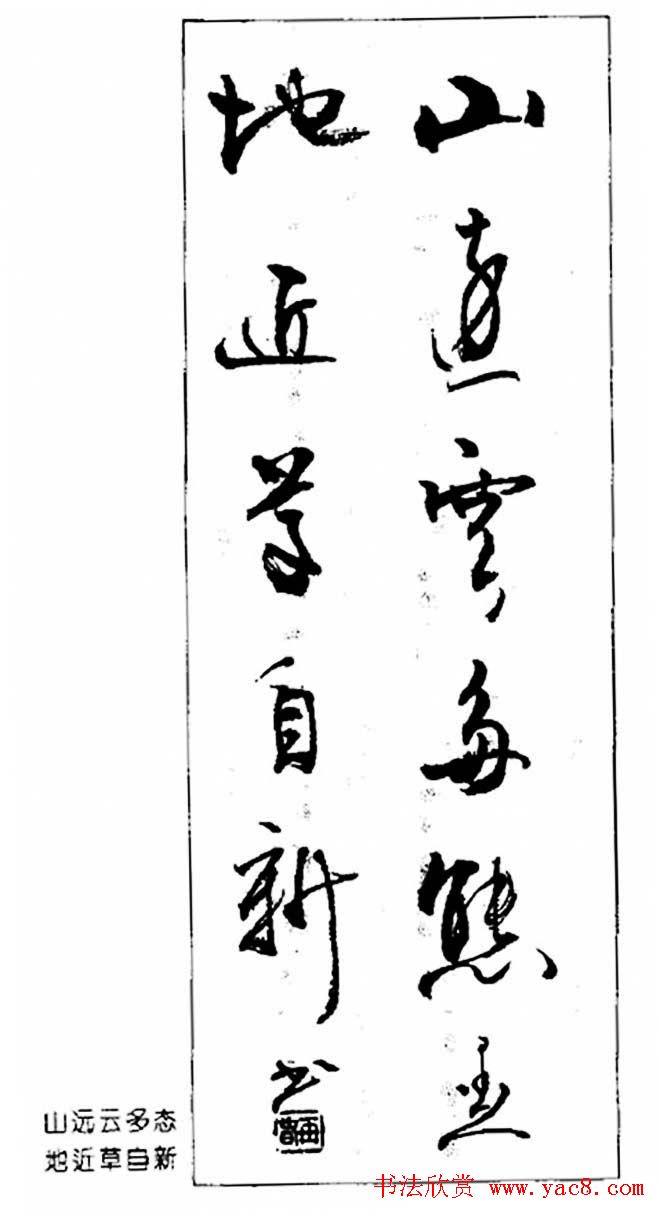 山遠雲多態
地近草自新书
山远云多态
地近草自新
书法欣赏 www.yac8.com